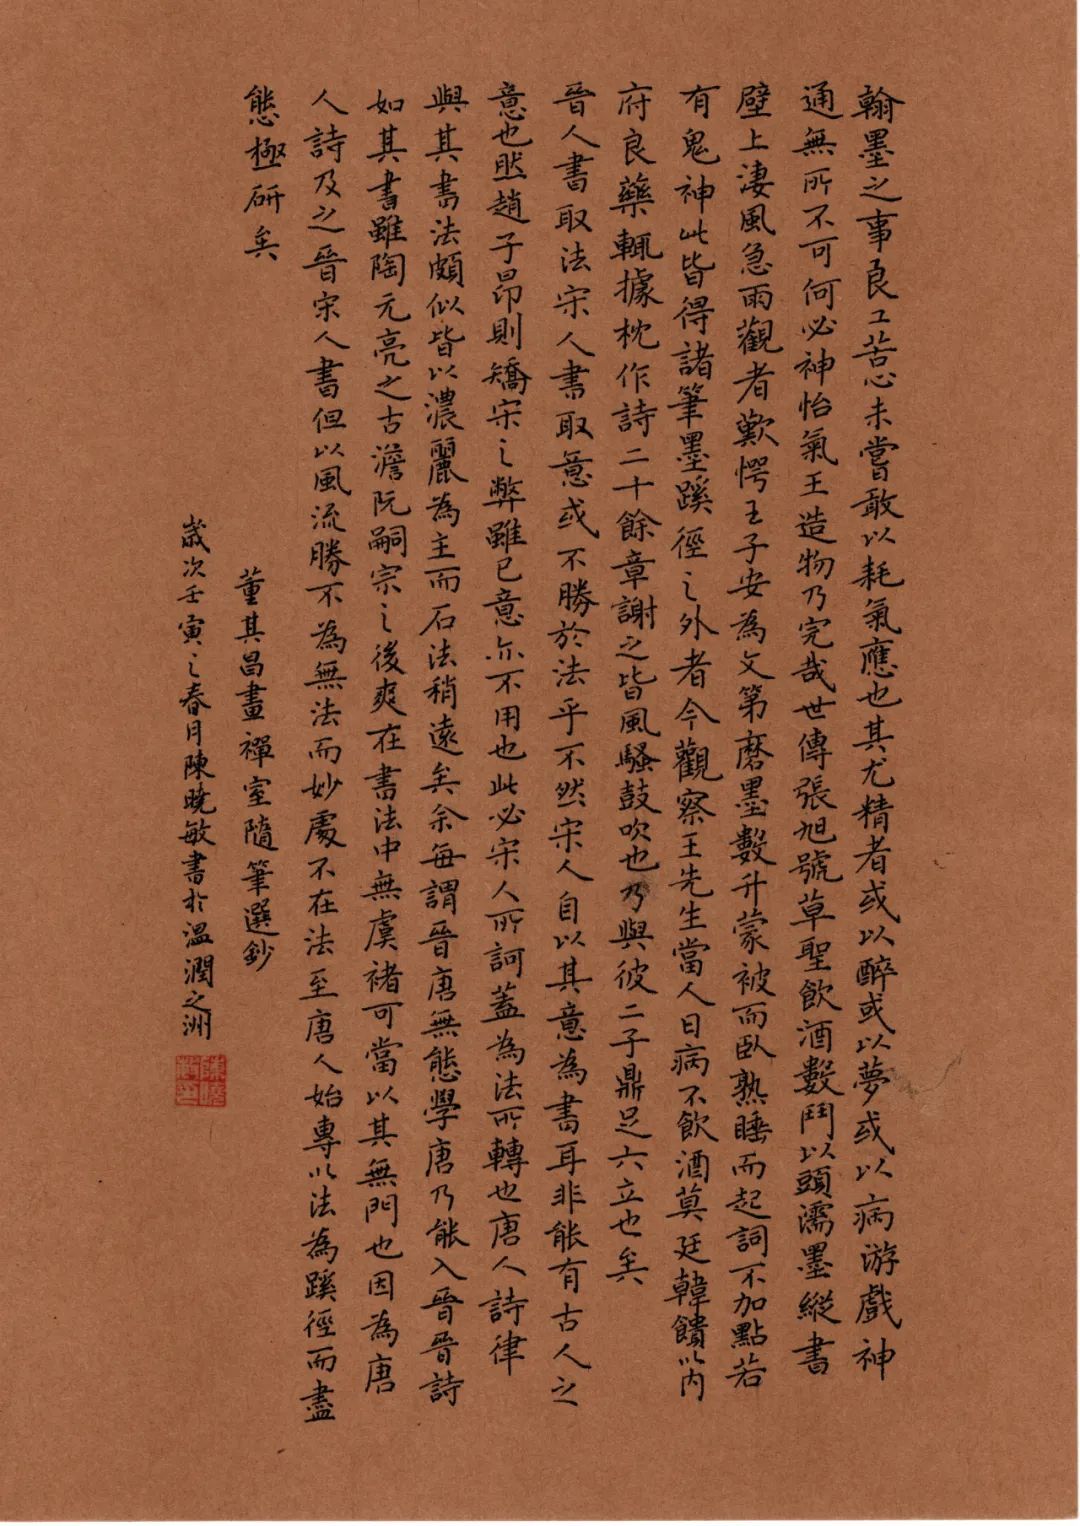 翰墨之事良工苦心未嘗敢以耗氣應也其尤精者或以醉或以夢或以病游戲神
通無所不可何必神怡氣王造物乃完哉世傳張旭號草聖飲酒數鬥以頭濡墨縱書
壁上淒風急雨觀者歎愕王子安為文第磨墨數升蒙被而臥熟睡而起詞不加點若
有鬼神此皆得諸筆墨蹊徑之外者今觀察王先生當人日病不飲酒莫廷韓饋以內
府良藥輒據枕作詩二十餘章謝之皆風騷鼓吹也乃與彼二子鼎足六立也矣
晉人書取法宋人書取意或不勝於法乎不然宋人自以其意為書耳非能有古人之
意也然趙子昂則矯宋之弊雖已意亦不用也此必宋人所訶蓋為法所轉也唐人詩律
與其書法頗似皆以濃麗為主而石法稍遠矣余每謂晉唐無態學唐乃能入晉晉詩
如其書雖陶元亮之古澹阮嗣宗之後爽在書法中無虞褚可當以其無門也因為唐
人詩及之晉宋人書但以風流勝不為無法而妙處不在法至唐人始專以法為蹊徑而盡
態極研矣
董其昌畫禪室隨筆選鈔
歲次壬寅之春月陳曉敏書於溫潤之洲